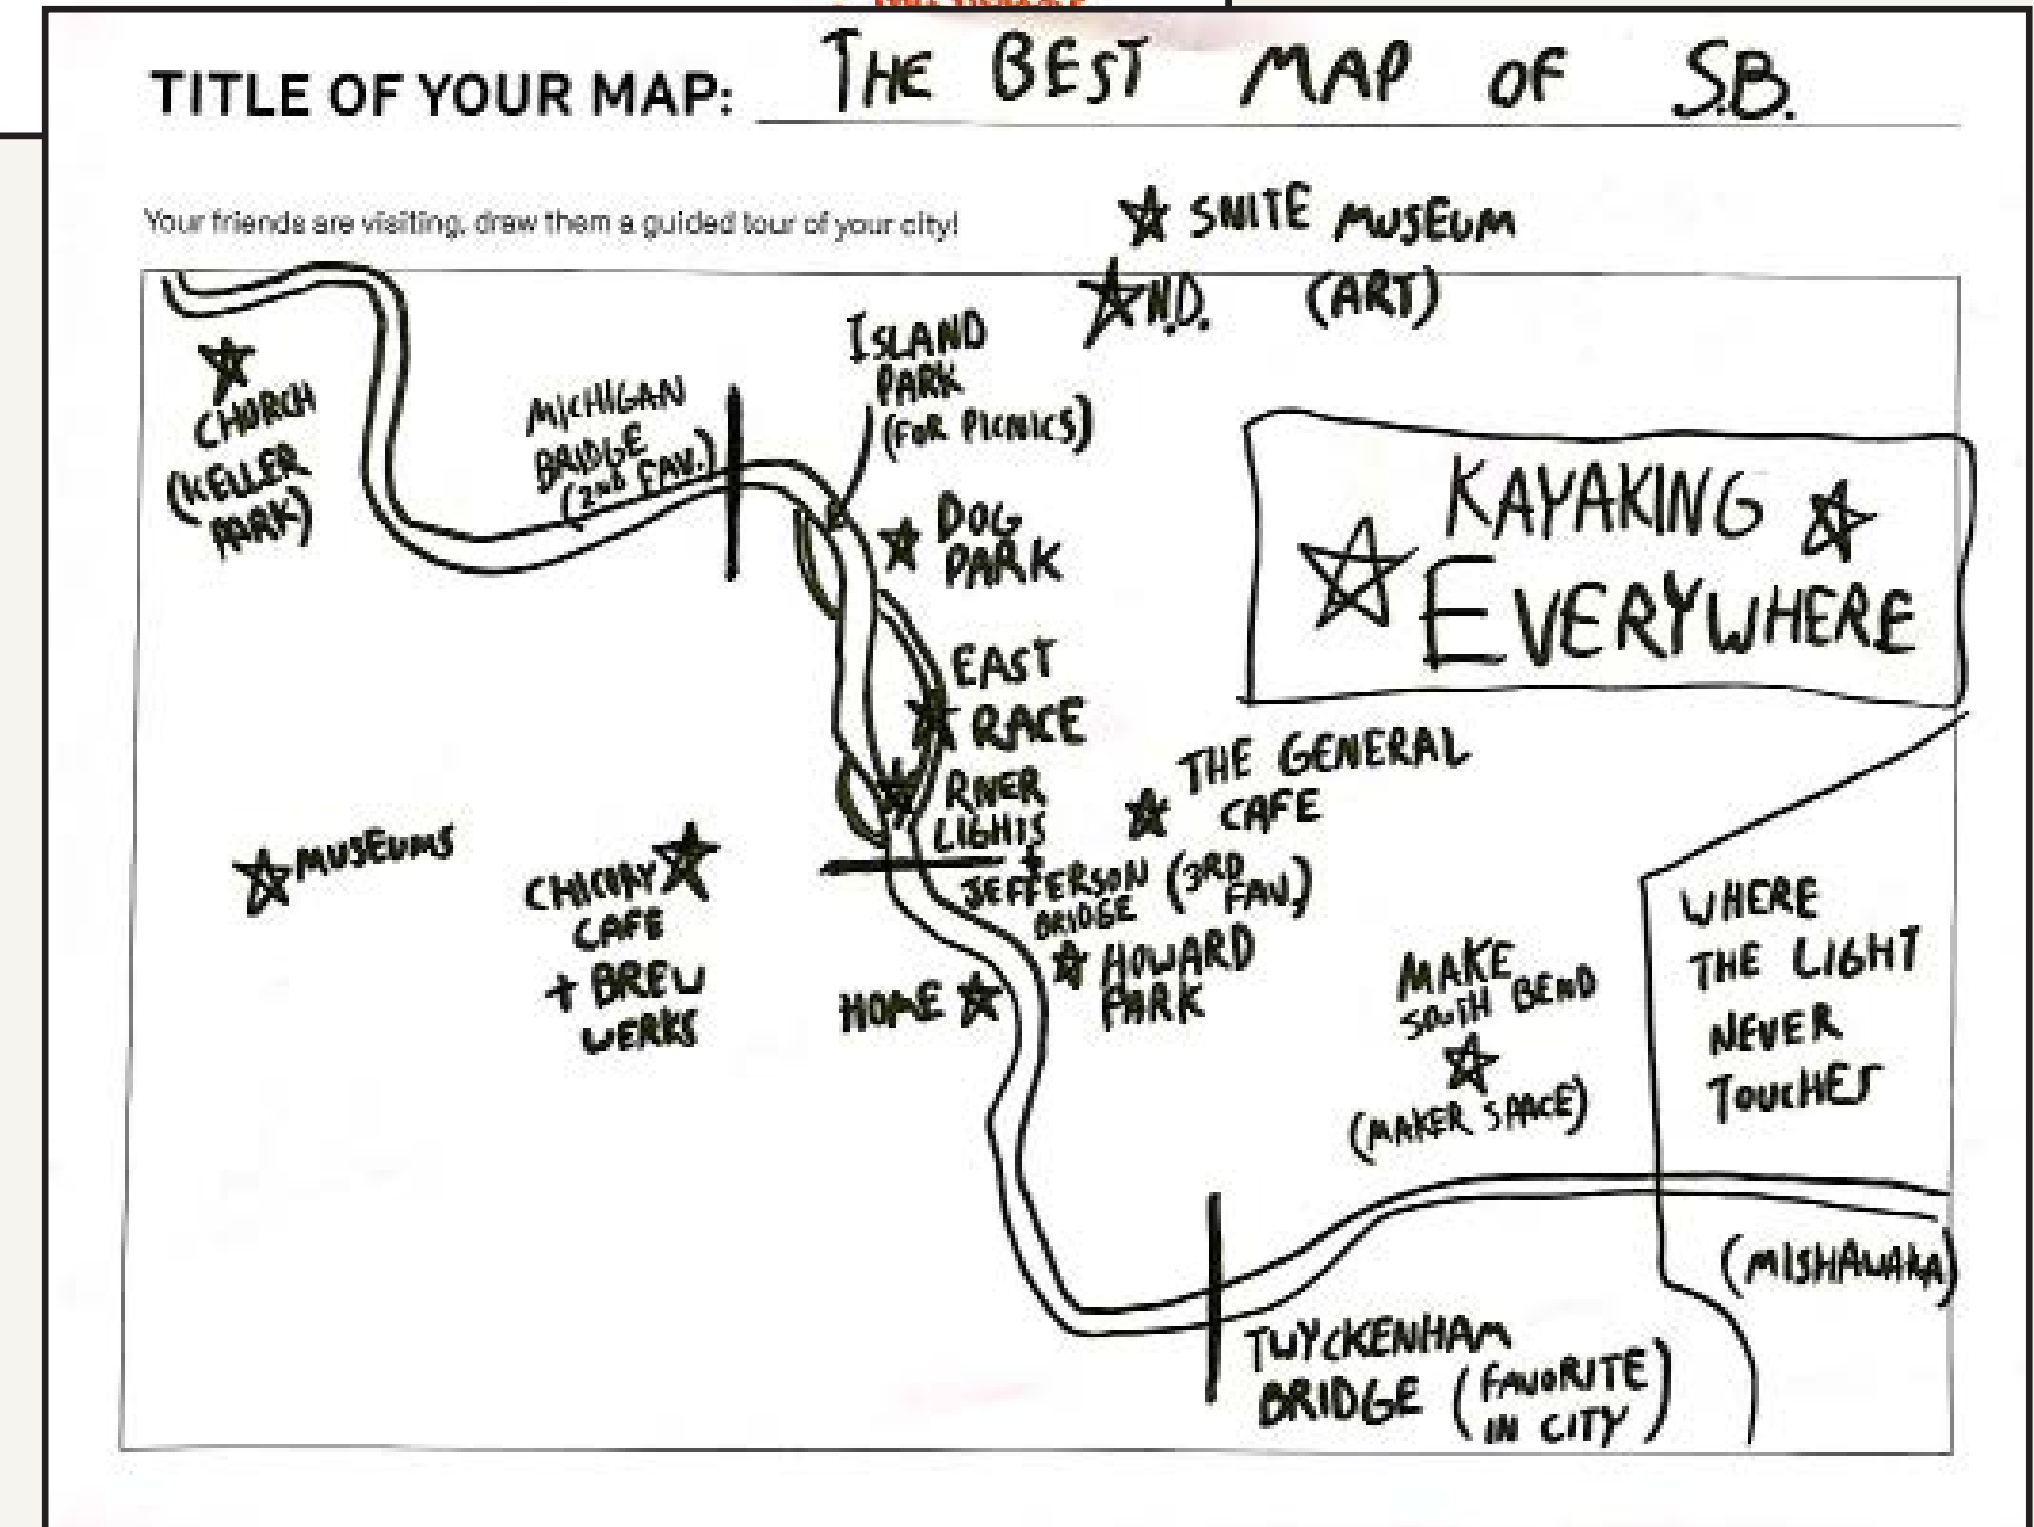 TITLE OF YOUR MAP: THE BEST MAP OF S.B.
Your friends are visiting, draw them a guided tour of your city!
SNITE MUSEUM
(ART)
N.D.
ISLAND
PARK
(FOR PICNICS)
CHURCH
(KELLER
PARK)
MICHIGAN
BRIDGE
(2ND FAV.)
DOG
PARK
KAYAKING
EVERYWHERE
EAST
RACE
RIVER
LIGHTS
+
JEFFERSON
BRIDGE
(3RD
FAV.)
THE GENERAL
CAFE
MUSEUMS
CHICORY
CAFE
+ BREW
WERKS
HOME
HOWARD
PARK
MAKE
SOUTH BEND
(MAKER SPACE)
WHERE
THE LIGHT
NEVER
TOUCHES
(MISHAWAKA)
TWYCKENHAM
BRIDGE (FAVORITE
IN CITY)